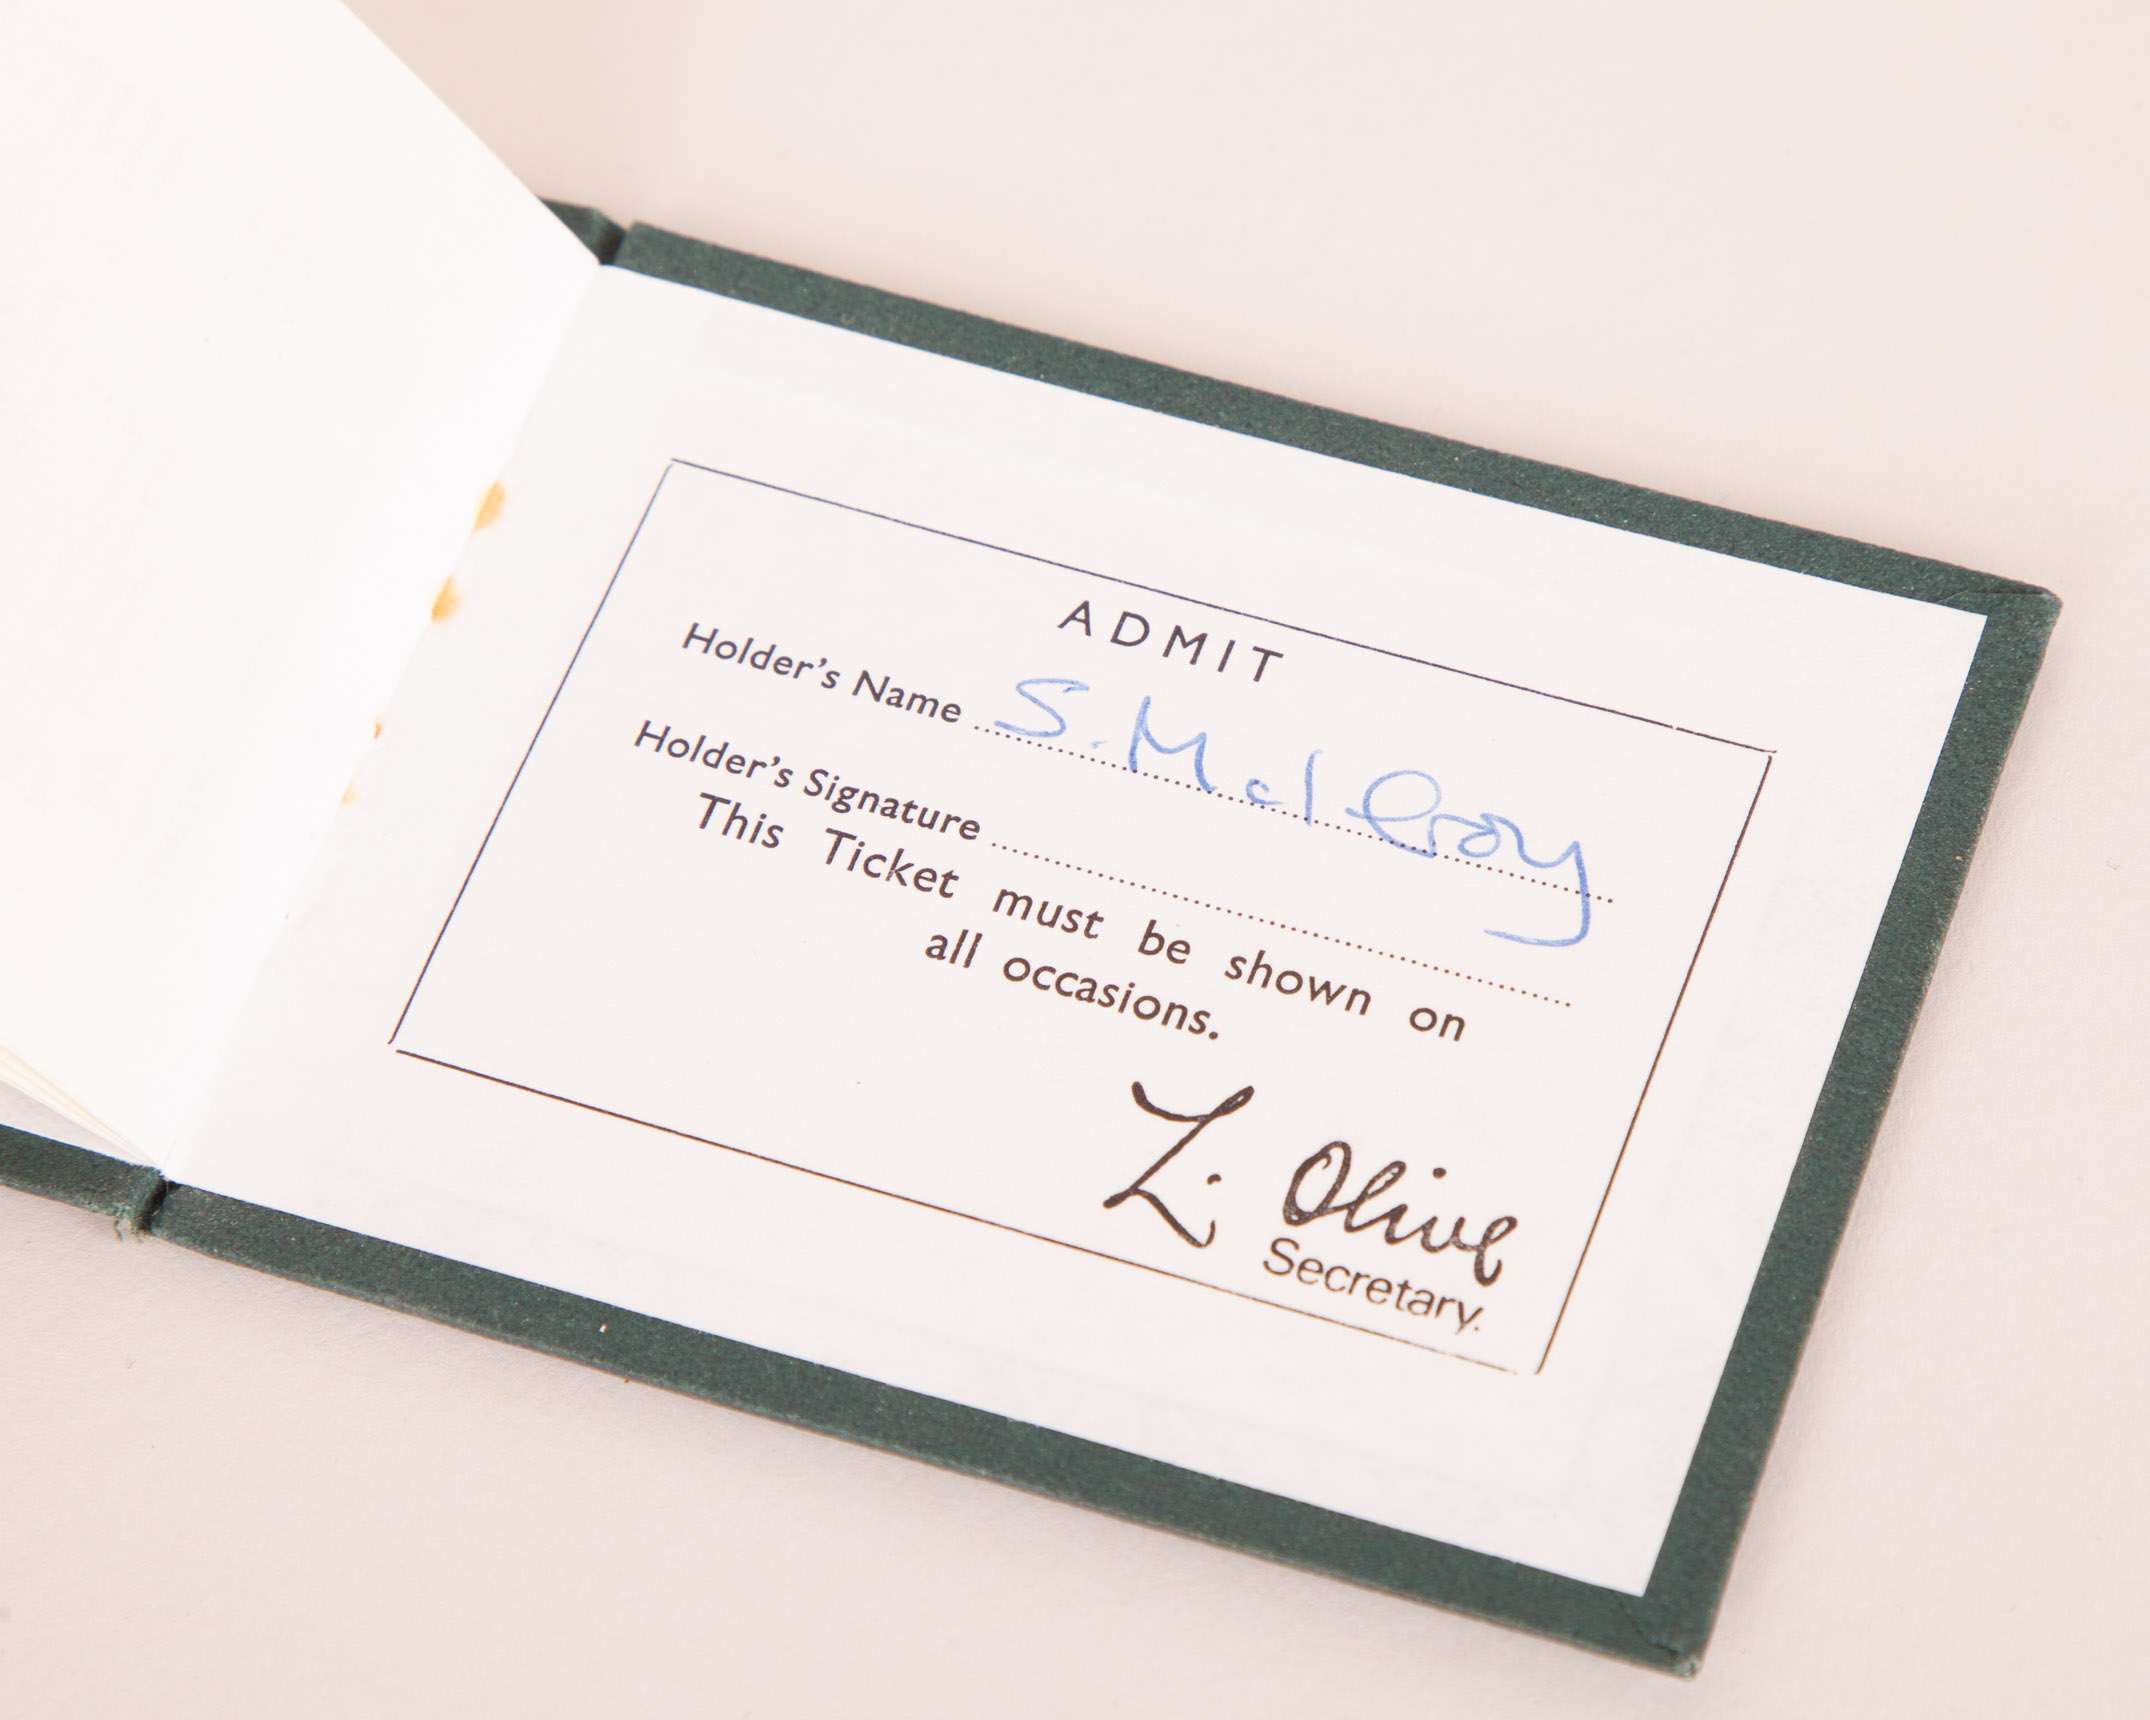 ADMIT
Holder's Name S. McIlroy
Holder's Signature
This Ticket must be shown on
all occasions.
L. Olive
Secretary.